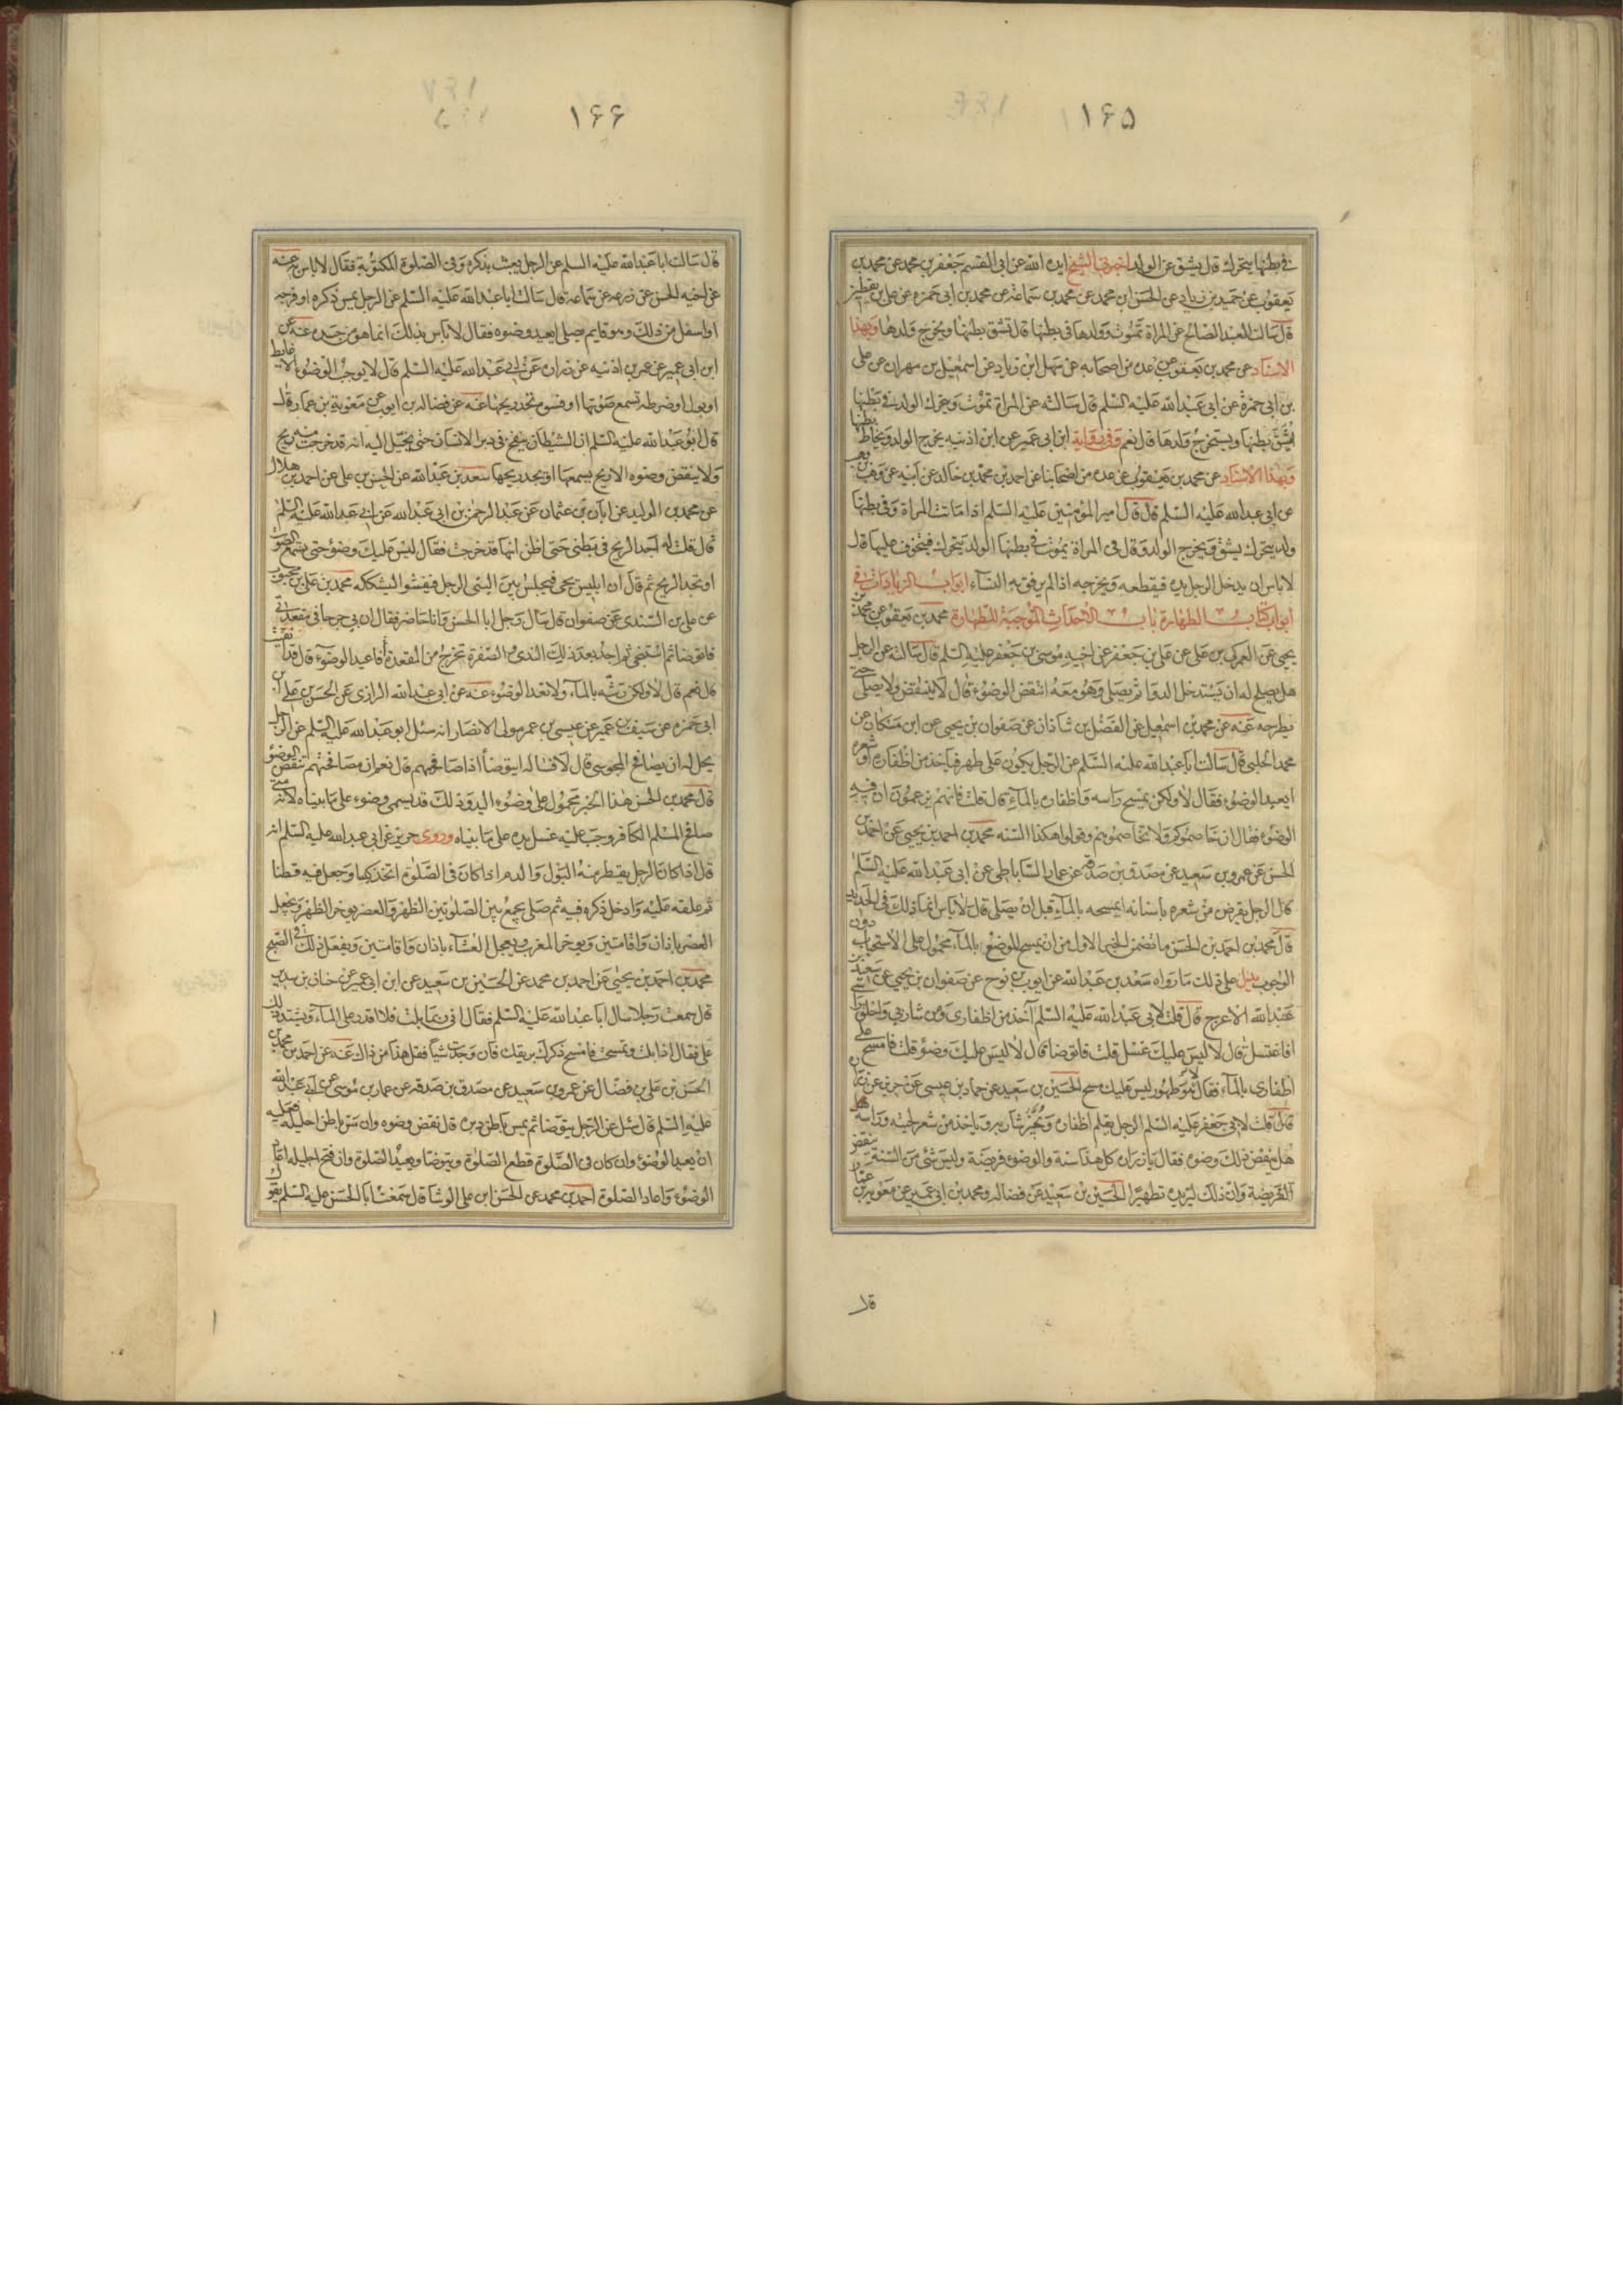 ۱۶۵
فی بطنها یتحرك قال یشق عن الولد اخبرنی الشیخ ایده الله عن ابی القسم جعفر بن محمد عن محمد بن
یعقوب عن حمید بن زیاد عن الحسن ابن محمد عن محمد بن سماعة عن محمد بن ابی حمزه عن علی بن یقطین
قال سالت العبد الصالح عن المراة تموت وولدها فی بطنها قال تشق بطنها ویخرج ولدها وبهذا
الاسناد عن محمد بن یعقوب عن عدة من اصحابه عن سهل ابن زیاد عن اسمعیل بن مهران عن علی
بن ابی حمزة عن ابی عبد الله علیه السلم قال سالته عن المراة تموت ویتحرك الولد فی بطنها
ایشق بطنها ویستخرج ولدها قال نعم وفی روایة ابن ابی عمیر عن ابن اذنیه یخرج الولد ویخاط بطنها
وبهذا الاسناد عن محمد بن یعقوب عن عدة من اصحابنا عن احمد بن محمد بن خالد عن ابیه عن وهب بن وهب
عن ابی عبد الله علیه السلم قال قال امیر المؤمنین علیه السلم اذا ماتت المراة وفی بطنها
ولد یتحرك یشق ویخرج الولد وقال فی المراة یموت فی بطنها الولد یتحرك فیتخوف علیها قال
لا باس ان یدخل الرجل یده فیقطعه ویخرجه اذا لم یرفق به النساء ابواب الزیادات فی
ابواب كتاب الطهارة باب الاحداث الموجبة للطهارة محمد بن یعقوب عن محمد بن
یحیی عن العمركی بن علی عن علی بن جعفر عن اخیه موسی بن جعفر علیه السلم قال سالته عن الرجل
هل یصلح له ان یستدخل الدوا ثم یصلی وهو معه اتنقض الوضوء قال لا ینقض ولا یصلی حتی
یطرحه عنه عن محمد بن اسمعیل عن الفضل بن شاذان عن صفوان بن یحیی عن ابن مسكان عن
محمد الحلبی قال سالت ابا عبد الله علیه السلم عن الرجل یكون علی طهر فیاخذ من اظفاره او شعره
ایعید الوضوء فقال لا ولكن یمسح راسه واظفاره بالماء قال قلت فانهم یزعمون ان فیه
الوضوء فقال ان خاصموكم ولا تخاصموهم وقولوا هكذا السنه محمد بن احمد بن یحیی عن احمد بن
الحسن عن عمرو بن سعید عن مصدق بن صدقة عن عمار الساباطی عن ابی عبد الله علیه السلم
قال الرجل یقرض من شعره باسنانه ایمسحه بالماء قبل ان یصلی قال لا باس انما ذلك فی الحدید
قال محمد بن احمد بن الحسن ما تضمن الخبر الاول من ان یمسح للوضوء بالماء محمول علی الاستحباب دون
الوجوب یدل علی ذلك ما رواه سعد بن عبد الله عن ایوب بن نوح عن صفوان بن یحیی عن سعید بن
عبد الله الاعرج قال قلت لابی عبد الله علیه السلم آخذ من اظفاری ومن شاربی واحلق راسی
افاغتسل قال لا لیس علیك غسل قلت فاتوضا قال لا لیس علیك وضوء قلت فامسح علی
اظفاری بالماء فقال هو طهور لیس علیك مسح الحسین بن سعید عن حماد بن عیسی عن حریز عن زرارة
قال قلت لابی جعفر علیه السلم الرجل یقلم اظفاره ویجز شاربه ویاخذ من شعر لحیته وراسه هل
هل ینقض ذلك وضوه فقال یا زراره كل هذا سنة والوضوء فریضة ولیس شئ من السنة ینقض
الفریضة وان ذلك لیزیده تطهیرا الحسین بن سعید عن فضاله ومحمد بن ابی عمیر عن معویة بن عمار
قال
۱۶۶
قال سالت ابا عبد الله علیه السلم عن الرجل یعبث بذكره وفی الصلوة المكتوبة فقال لا باس عنه
عن اخیه الحسن عن زرعه عن سماعة قال سالت ابا عبد الله علیه السلم عن الرجل یمس ذكره او فرجه
او اسفل من ذلك وهو قایم یصلی ایعید وضوه فقال لا باس بذلك انما هو من جسده عنه عن
ابن ابی عمیر عن عمر بن اذنیه عن زراره عن ابی عبد الله علیه السلم قال لا یوجب الوضوء الا غایط
او بول او ضرطه تسمع صوتها او فسوه تجد ریحها عنه عن فضاله بن ایوب عن معویة بن عمار قال
قال ابو عبد الله علیه السلم ان الشیطان ینفخ فی دبر الانسان حتی یخیل الیه انه قد خرجت منه ریح
ولا ینقض وضوه الا ریح یسمعها او یجد ریحها سعد بن عبد الله عن الحسن بن علی عن احمد بن هلال
عن محمد بن الولید عن ابان بن عثمان عن عبد الرحمن بن ابی عبد الله عن ابی عبد الله علیه السلم
قال قلت له اجد الریح فی بطنی حتی اظن انها قد خرجت فقال لیس علیك وضوء حتی تسمع الصوت
او تجد الریح ثم قال ان ابلیس یجی فیجلس بین الیتی الرجل فیفسو الیشككه محمد بن علی بن محبوب
عن علی بن السندی عن صفوان قال سال رجل ابا الحسن وانا حاضر فقال ان بی جرحا فی مقعدتی
فاتوضا ثم استنجی ثم اجد بعد ذلك الندی والصفرة تخرج من المقعدة أفاعید الوضوء قال قد انقیت
قال نعم قال لا ولكن رشه بالماء ولا تعد الوضوء عنه عن ابی عبد الله الرازی عن الحسن بن علی بن
ابی حمزه عن سیف بن عمیر عن عیسی بن عمر مولی الانصار انه سئل ابو عبد الله علیه السلم عن الرجل
یحل له ان یصافح المجوسی قال لا فساله ایتوضأ اذا صافحهم قال نعم ان مصافحتهم تنقض الوضوء
قال محمد بن الحسن هذا الخبر محمول علی وضوء الید وذلك قد یسمی وضوء علی ما بیناه لانه متی
صافح المسلم الكافر وجب علیه غسل یده علی ما بیناه وروی حریز عن ابی عبد الله علیه السلم انه
قال اذا كان الرجل یقطر منه البول والدم اذا كان فی الصلوة اتخذ كیسا وجعل فیه قطنا
ثم علقه علیه وادخل ذكره فیه ثم صلی یجمع بین الصلوتین الظهر والعصر یوخر الظهر ویعجل
العصر باذان واقامتین ویوخر المغرب ویعجل العشاء باذان واقامتین ویفعل ذلك فی الصبح
محمد بن احمد بن یحیی عن احمد بن محمد عن الحسین بن سعید عن ابن ابی عمیر عن حنان بن سدیر
قال سمعت رجلا سال ابا عبد الله علیه السلم فقال انی ربما بلت فلا اقدر علی الماء ویشتد ذلك
علی فقال اذا بلت وتمسحت فامسح ذكرك بریقك فان وجدت شیأ فقل هذا من ذاك عنه عن احمد بن محمد بن
الحسن بن علی بن فضال عن عمرو بن سعید عن مصدق بن صدقه عن عمار بن موسی عن ابی عبد الله
علیه السلم قال سئل عن الرجل یتوضا ثم یمس باطن دبره قال نقض وضوه وان مس باطن احلیله فعلیه
ان یعید الوضوء وان كان فی الصلوة قطع الصلوة ویتوضا ویعید الصلوة وان فتح احلیله اعاد
الوضوء واعاد الصلوة احمد بن محمد عن الحسن ابن علی الوشا قال سمعت ابا الحسن علیه السلم یقول